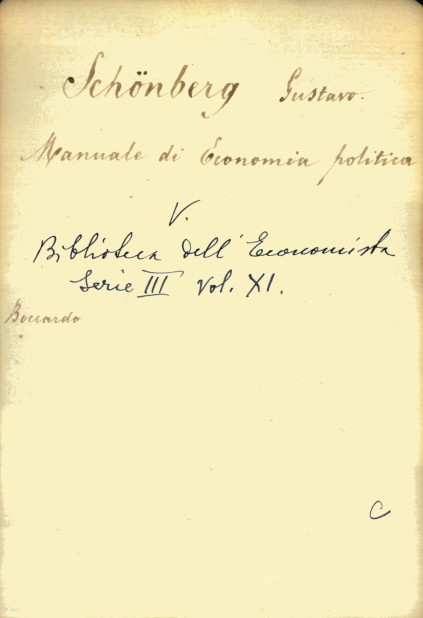 Schönberg Gustavo.
Manuale di Economia politica
V.
Biblioteca dell'Economista
Serie III Vol. XI.
Boccardo
C